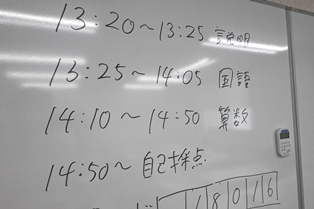 13:20～13:25 説明
13:25～14:05 国語
14:10～14:50 算数
14:50～ 自己採点
18016